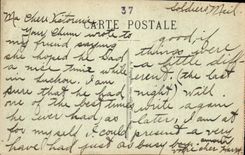 37
Soldiers Mail
CARTE POSTALE
Ma Cheri Victorine
Your Chum wrote to
my friend saying
she hoped he had
a nice time while
in Luchon. I am
sure that he had
one of the best times
he ever had, as
for myself, I could
have had just as
good, if
things were
a little diff
erent. (the last
night) Will
write again
later, I am at
present a very
busy boy.